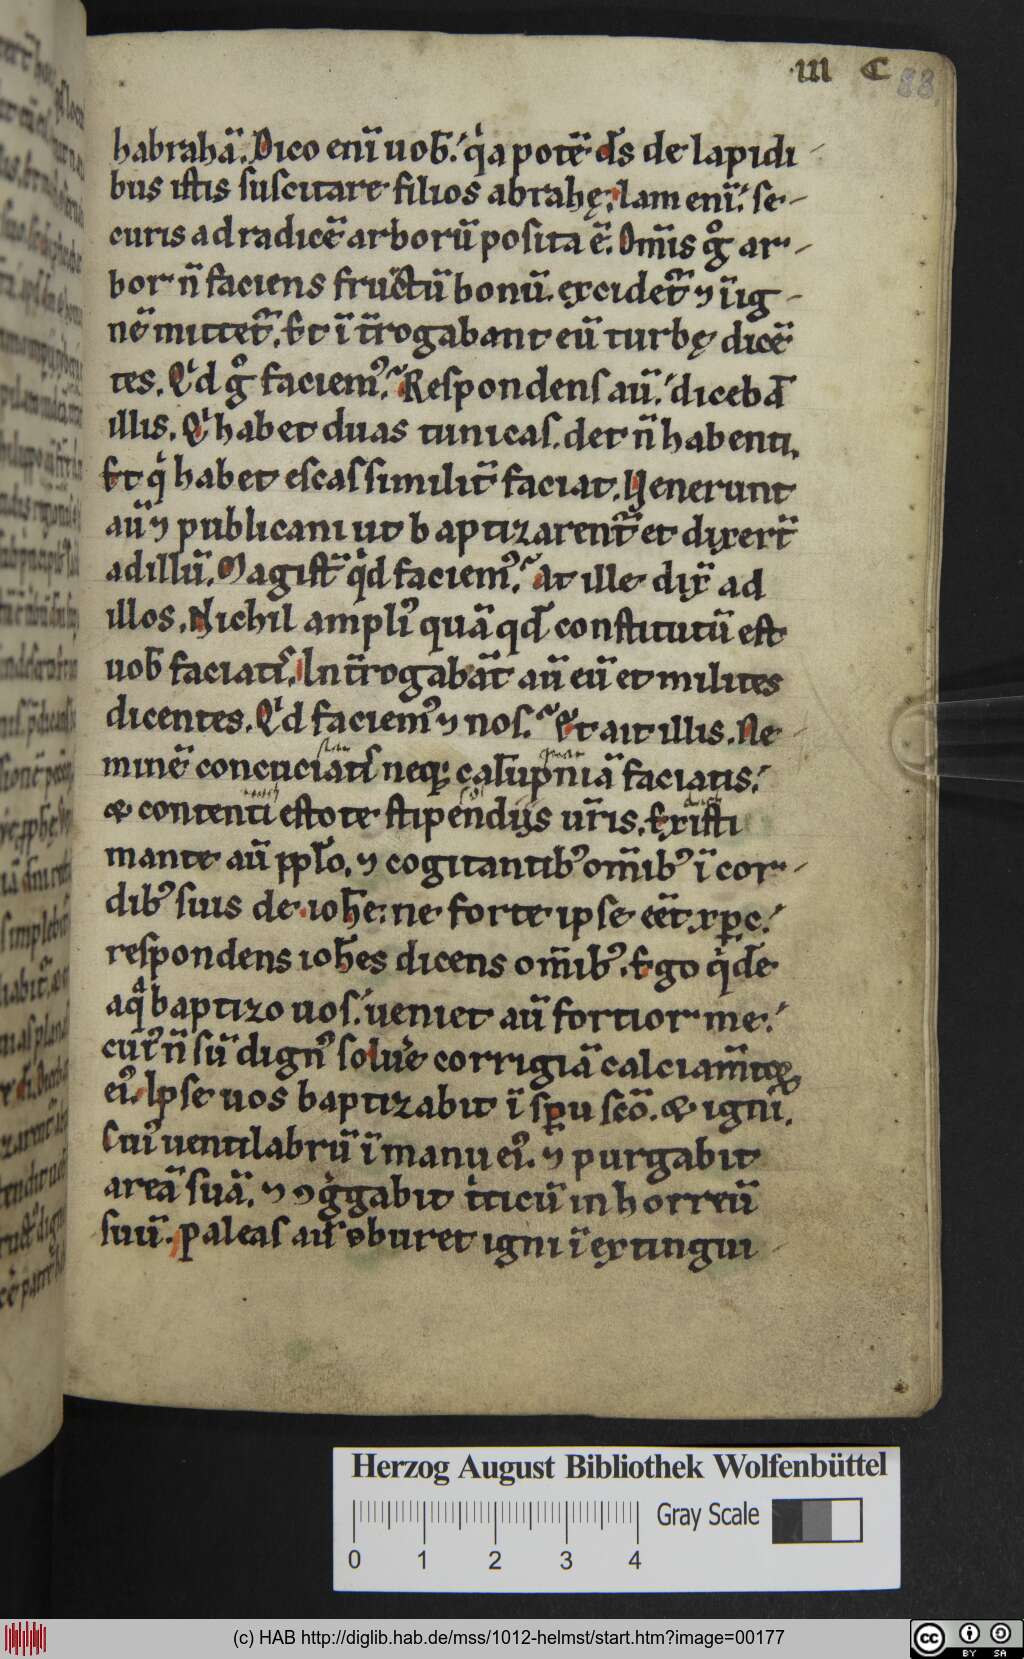 ·III C 83.
habrahā. Dico enī uob̄. qͥa potē d̄s de lapidi
bus istis suscitare filios abrahę. Iam enī. se
curis ad radicē arborū posita ē. Om̄is gͦ ar
bor n̄ faciens fructū bonū. excidet᷑ ⁊ ī ig
nē mittet᷑. Et īt̄rogabant eū turbę dicē
tes. Qͥd gͦ faciemꝰ. Respondens aū. diceba̅t
illis. Qͥ habet duas tunicas. det n̄ habenti.
Et qͥ habet escas similit᷑ faciat. Uenerunt
aū ⁊ publicani ut baptizarent᷑ et dixert̄
ad illū. Magist̄ qͥd faciemꝰ. At ille dix̄ ad
illos. Nichil amplꝰ quā qd̄ constitutū est
uob̄ faciatͥs. Int̄rogaba̅t aū eū et milites
dicentes. Qͥd faciemꝰ ⁊ nos. Et ait illis. Ne
minē concuciatͥs neqꝫ calūpniā faciatis.
& contenti estote stipendijs ur̄is. Existi
mante aū ppl̄o. ⁊ cogitantibꝰ om̄ibꝰ ī cor
dibꝰ suis de ioh̄e: ne forte ipse ee̅t xp̄c.
respondens ioh̄es dicens om̄ibꝰ. Ego qͥdē
aqͣ baptizo uos. ueniet aū fortior me.
cuiꝰ n̄ sū dignꝰ soluͤe corrigiā calciam̄toꝝ
eiꝰ. Ipse uos baptizabit ī sp̄u sc̄o. & igni.
Cuiꝰ uentilabrū ī manu eiꝰ. ⁊ purgabit
areā suā. ⁊ ꝯgͤgabit tͥticū in horreū
suū. Paleas aū ꝯburet igni īextingui
Herzog August Bibliothek Wolfenbüttel
Gray Scale
0 1 2 3 4
(c) HAB http://diglib.hab.de/mss/1012-helmst/start.htm?image=00177
cc BY SA